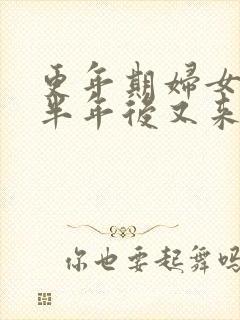 更年期妇女
半年后又来
你也要起舞吗